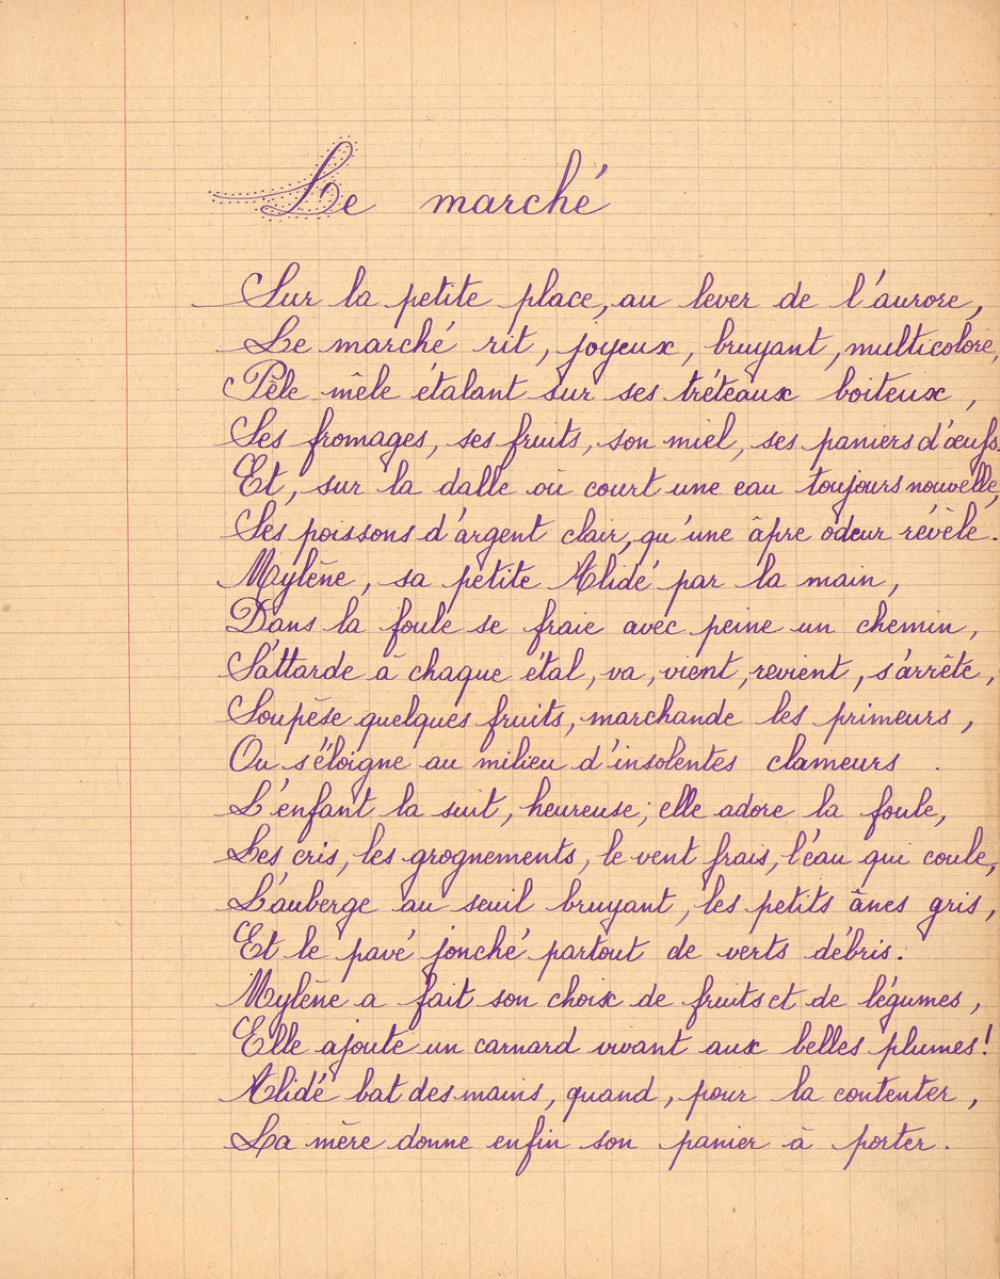 Le marché
Sur la petite place, au lever de l'aurore,
Le marché rit, joyeux, bruyant, multicolore,
Pêle mêle étalant sur ses tréteaux boiteux,
Ses fromages, ses fruits, son miel, ses paniers d'œufs.
Et, sur la dalle où court une eau toujours nouvelle,
Ses poissons d'argent clair, qu'une âpre odeur révèle.
Mylène, sa petite Alidé par la main,
Dans la foule se fraie avec peine un chemin,
S'attarde à chaque étal, va, vient, revient, s'arrête,
Soupèse quelques fruits, marchande les primeurs,
Ou s'éloigne au milieu d'insolentes clameurs.
L'enfant la suit, heureuse; elle adore la foule,
Les cris, les grognements, le vent frais, l'eau qui coule,
L'auberge au seuil bruyant, les petits ânes gris,
Et le pavé jonché partout de verts débris.
Mylène a fait son choix de fruits et de légumes,
Elle ajoute un carnard vivant aux belles plumes!
Alidé bat des mains, quand, pour la contenter,
La mère donne enfin son panier à porter.